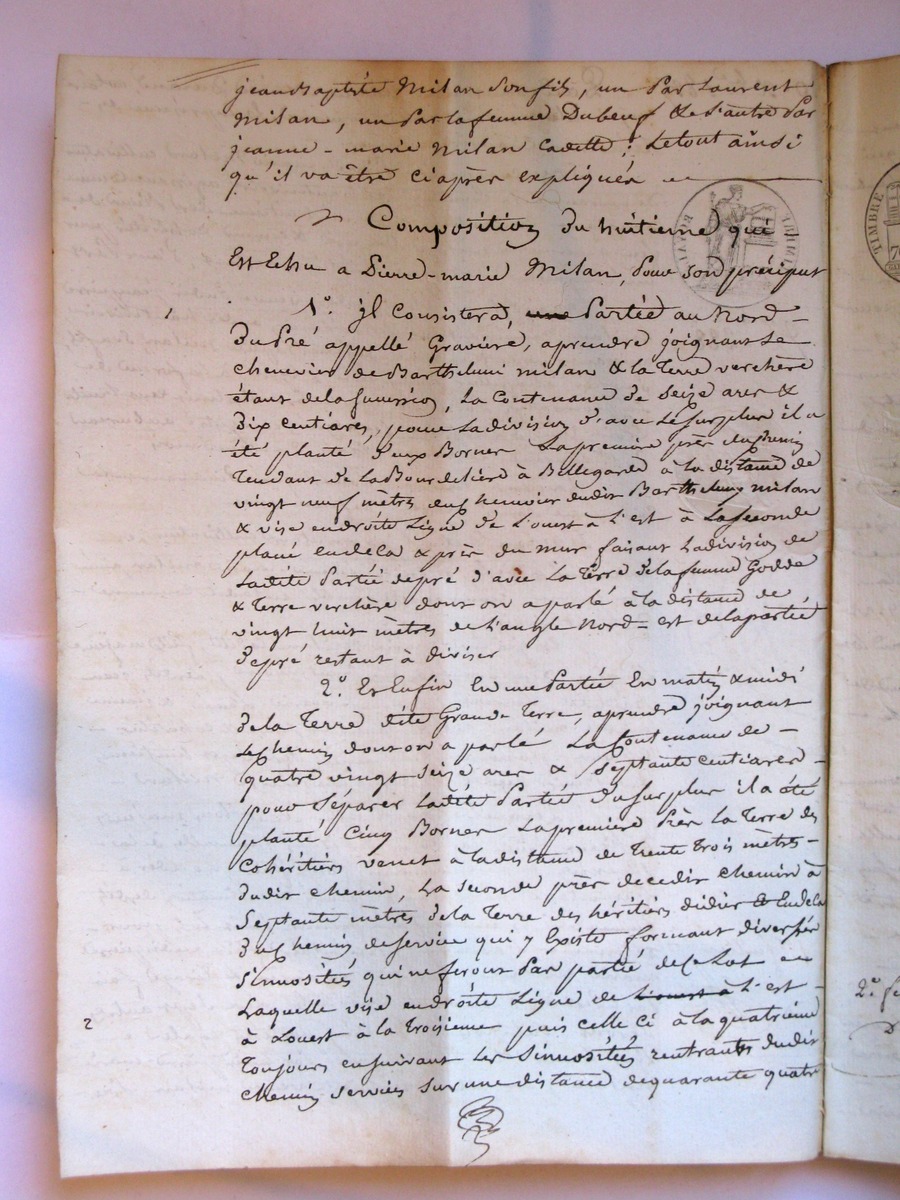 jean Baptiste Milan Son fils, un Par Laurent
Milan, un Par la femme Dubeuf & l'autre Par
jeanne-marie Milan Cadette; Le tout ainsi
qu'il va être ci après expliqués
Composition du huitieme qui
Est Echu a Pierre-marie Milan, pour son préciput
1
1º. jl Consistera, une Partie au Nord
Du Pré appellé Graviere, a prendre joignant Le
chenevier de Barthelemi milan & la Terre verchère
étant de la succession, La Contenance de Seize ares &
Dix Centiares, pour La division d'avec Le surplus il a
été planté deux Borner La premiere près du chemin
Tendant de La Bourdeliere à Bellegarde à la distance de
vingt neuf mètres du chenevier dudit Barthelemy milan
& vise en droite Ligne de L'ouest à L'est à La Seconde
placé en deca & près du mur faisant La division de
Ladite Partie de pré d'avec La Terre de la femme Godde
& Terre verchère dont on a parlé à la distance de
vingt huit mètres de L'angle Nord-est de la partie
de pré restant à diviser
2º. Et Enfin En une Partie En matin & midi
de la Terre dite Grande Terre, a prendre joignant
Le chemin dont on a parlé La Contenance de
quatre vingt Seize ares & Septante Centiares
pour Séparer Ladite Partie du surplus il a été
planté Cinq Borner La premiere Près La Terre des
Cohéritiers venet à la distance de Trente Trois mètres
dudit chemin, La seconde près de ce dit chemin à
Septante mètres de la Terre des héritiers didier & En de la
du chemin de service qui y Existe formant diverses
Sinuosités qui ne feront Pas partie de Ce Lot
Laquelle vise en droite Ligne de L'ouest à L'est
2
à Louest à la Troisieme puis celle Ci à la quatrieme
Toujours en suivant Les Sinuosités rentrants dudit
chemin Services sur une distance de quarante quatre
TIMBRE
2º